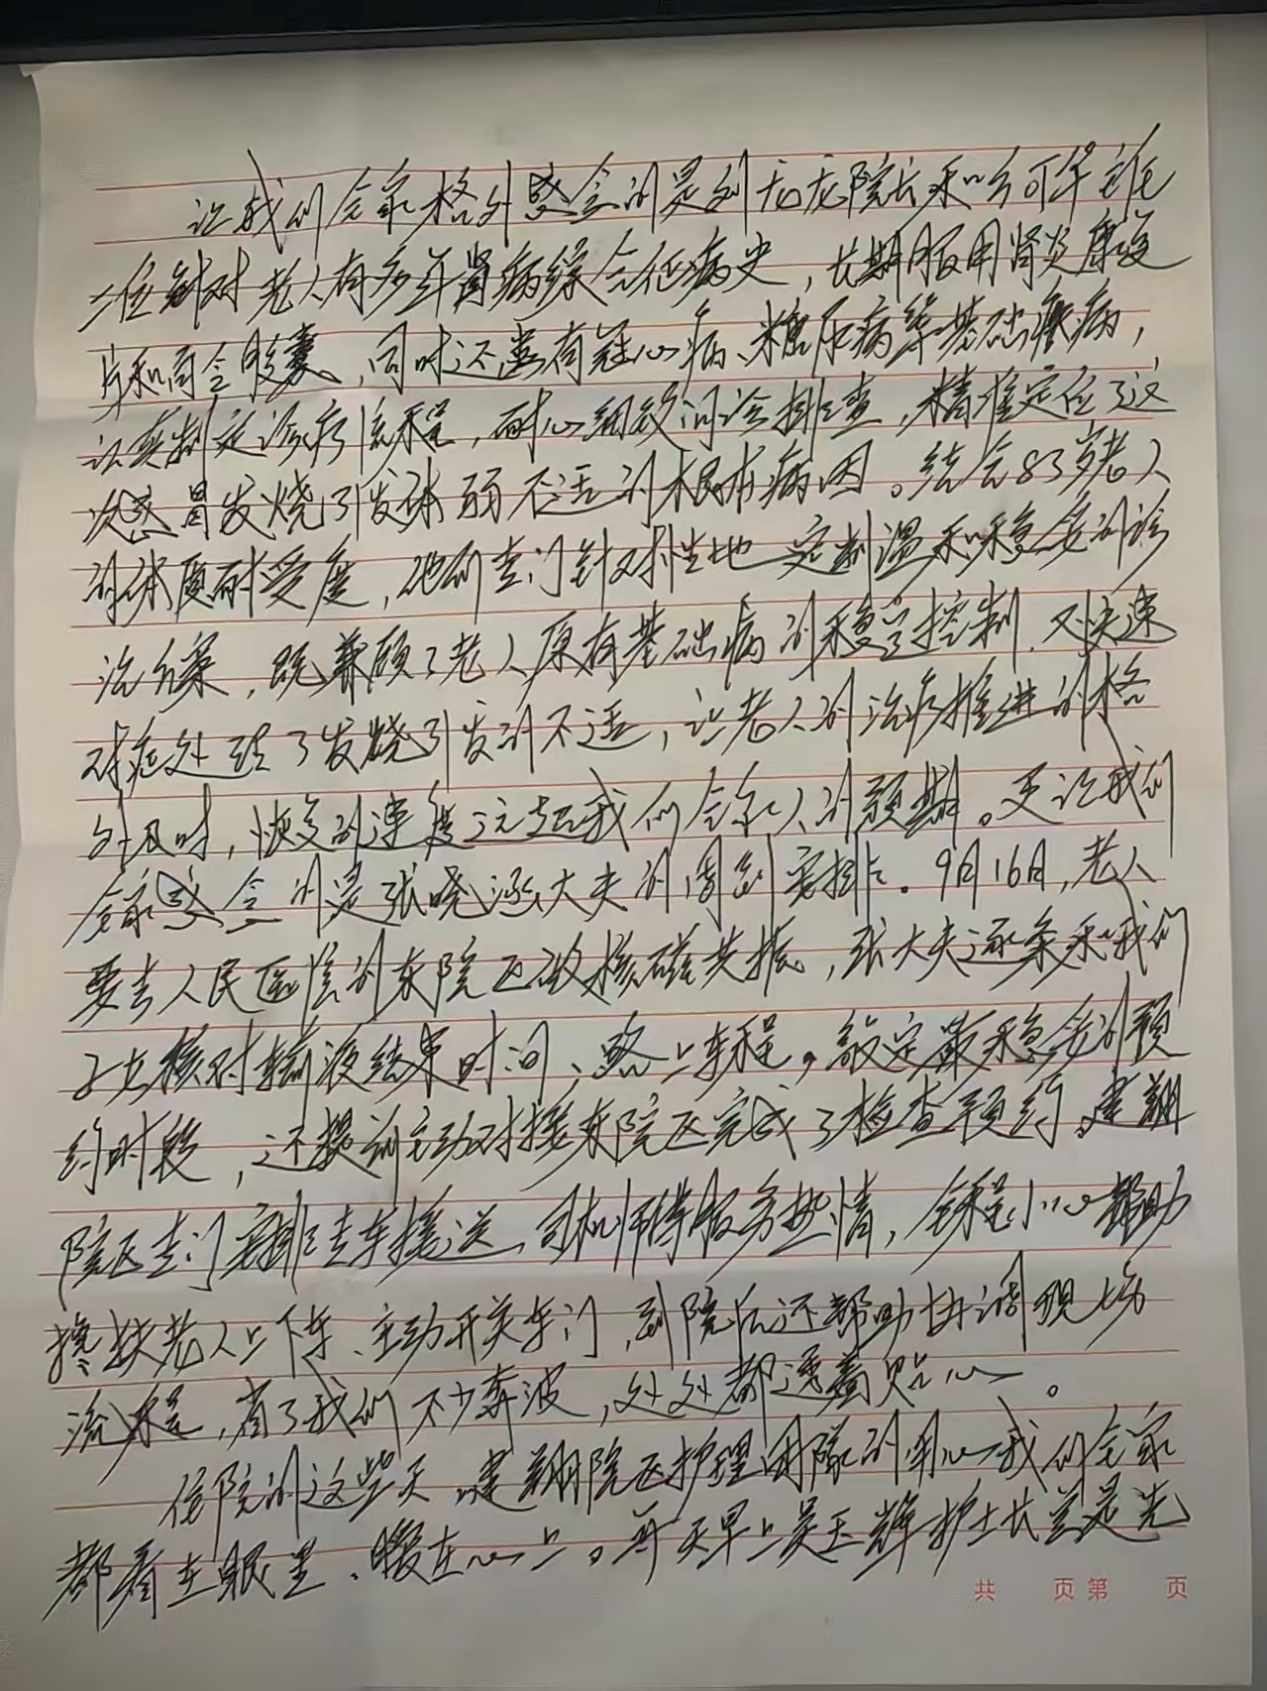 让我们全家格外感念的是刘龙龙院长和
二位针对老人有多年肾病综合征病史，长期服用肾炎康复
片和百令胶囊，同时还患有冠心病、糖尿病等基础疾病，
认真制定诊疗流程，耐心细致问诊排查，精准定位了这
次感冒发烧引发体弱不适的根本病因。结合83岁老人
的体质耐受度，他们专门针对性地定制温和稳妥的诊
治方案，既兼顾了老人原有基础病的稳定控制，又快速
对症处理了发烧引发的不适，让老人的治疗推进的格
外及时，恢复的速度远超我们全家人的预期。更让我们
全家感念的是张晓涵大夫的周到安排。9月16日，老人
要去人民医院的东院区做核磁共振，张大夫逐条和我们
子女核对输液结束时间、路上车程，敲定最稳妥的预
约时段，还提前主动对接东院区完成了检查预约。建翔
院区专门安排专车接送，司机师傅服务热情，全程小心帮助
搀扶老人上下车、主动开关车门，到院后还帮助协调现场
流程，省了我们不少奔波，处处都透着贴心。
住院的这些天，建翔院区护理团队的用心我们全家
都看在眼里、暖在心上。每天早上吴玉辉护士长总是先
共 页第 页